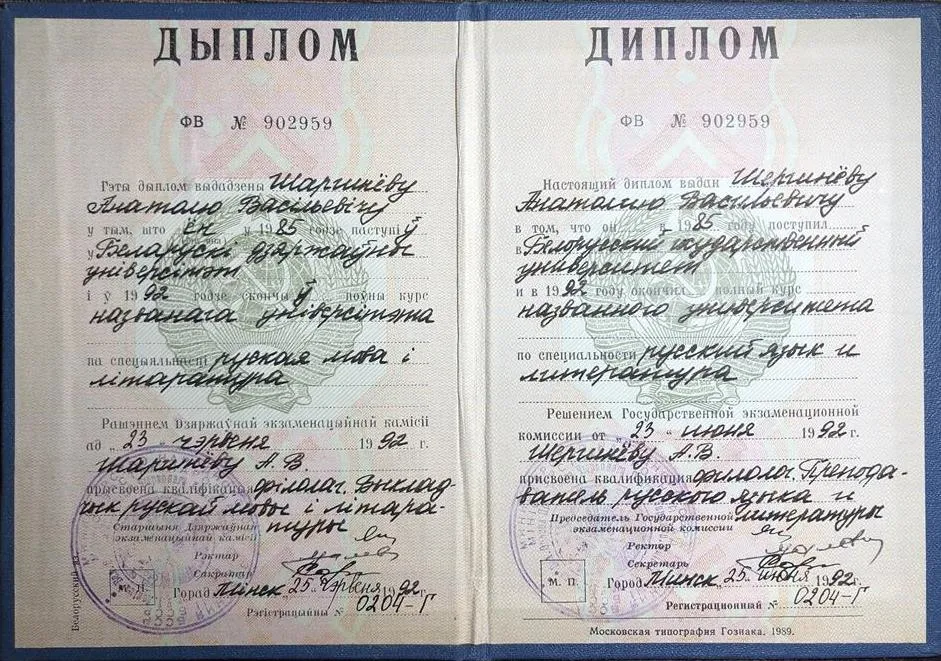 ДЫПЛОМ
ФВ № 902959
Гэты дыплом выдадзены Шаргинёву
Анатолю Васільевічу
у тым, што ён у 1985 годзе паступіў
у Беларускі дзяржаўны
універсітэт
і ў 1992 годзе скончыў поўны курс
названага універсітэта
па спецыяльнасці руская мова і
літаратура
Рашэннем Дзяржаўнай экзаменацыйнай камісіі
ад „23“ чэрвеня 1992 г.
Шаргинёву А. В.
прысвоена кваліфікацыя філолаг. Выклад-
чык рускай мовы і літара-
туры
Старшыня Дзяржаўнай
экзаменацыйнай камісіі
Рэктар
Сакратар
М. П.
Горад Мінск 25 чэрвеня 1992 г.
Рэгістрацыйны № 0204-Г
Белорусский яз.
ДИПЛОМ
ФВ № 902959
Настоящий диплом выдан Шергинёву
Анатолию Васильевичу
в том, что он в 1985 году поступил
в Белорусский государственный
университет
и в 1992 году окончил полный курс
названного университета
по специальности русский язык и
литература
Решением Государственной экзаменационной
комиссии от „23“ июня 1992 г.
Шергинёву А. В.
присвоена квалификация филолог. Препода-
ватель русского языка и
литературы
Председатель Государственной
экзаменационной комиссии
Ректор
Секретарь
М. П.
Город Минск 25 июня 1992 г.
Регистрационный № 0204-Г
Московская типография Гознака. 1989.